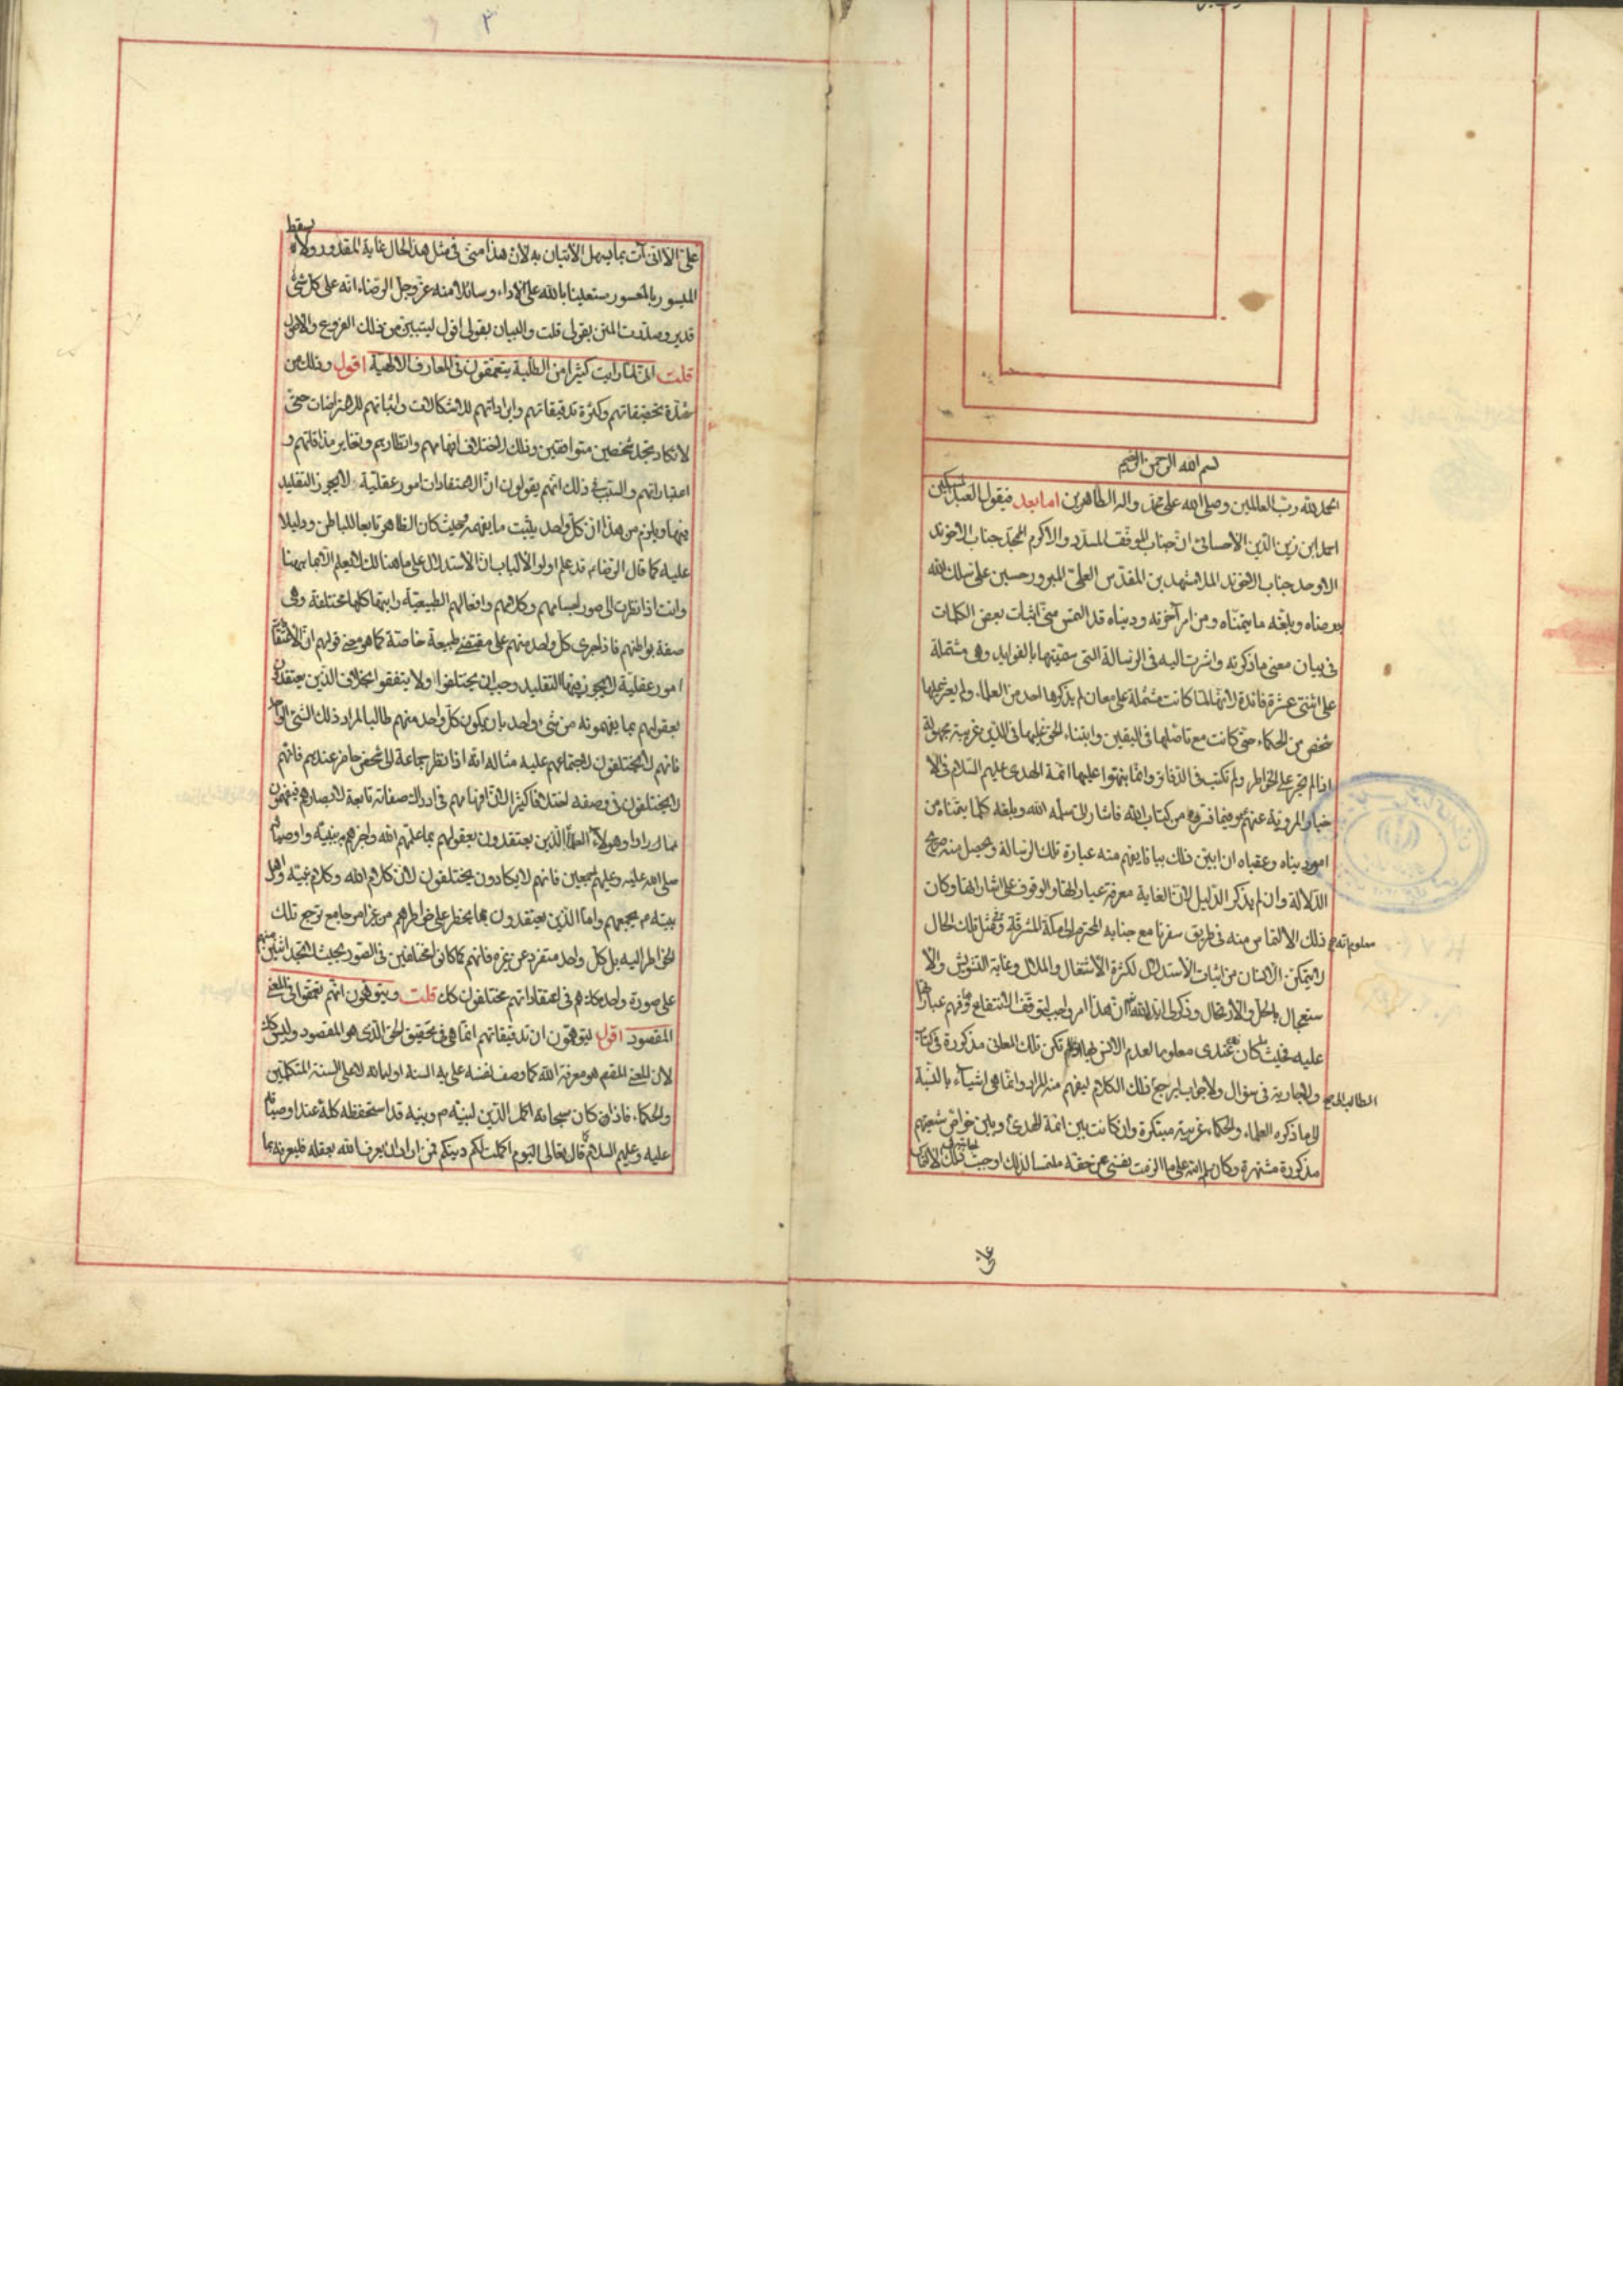 بسم الله الرحمن الرحيم
الحمد لله رب العالمين وصلى الله على محمد واله الطاهرين اما بعد فيقول العبد المسكين
احمد ابن زين الدين الاحسائى ان جناب الموفق المسدد والاكرم الممجد جناب الاخوند
الاوحد جناب الاخوند الملا مشهد بن المقدس العلى المبرور حسين على سلك الله
به رضاه وبلغه ما يتمناه ومن امر آخرته ودنياه قد التمس منى اثبات بعض الكلمات
فى بيان معنى ما ذكرته واشرت اليه فى الرسالة التى سميتها بالفوايد وهى مشتملة
على اثنتى عشرة فائدة لانها لما كانت مشتملة على معان لم يذكرها احد من العلماء ولم يعثر عليها
شخص من الحكماء حتى كانت مع تاصلها فى اليقين وابتناء الحق عليها فى الدين غريبة مجهولة
اذ لم تجر على الخواطر ولم تكتب فى الدفاتر وانما نبهوا عليها ائمة الهدى عليهم السلام فى الا
خبار المروية عنهم وفيما قروه من كتاب الله فاشار الى سلمه الله وبلغه كلما يتمناه من
امور دنياه وعقباه ان ابين ذلك بيانا يفهم منه عبارة تلك الرسالة ويحصل منه صريح
الدلالة وان لم يذكر الدليل لان الغاية معرفة عباراتها والوقوف على اشاراتها وكان
ذلك الالتماس منه فى طريق سفرنا مع جنابه المحترم الى مكة المشرفة وفى مثل تلك الحال
معلوم انه
لا يتمكن الانسان من اثبات الاستدلال لكثرة الاشتغال والملال وغاية التشويش والا
ستعجال بالحل والارتحال وذكر ايده الله ان هذا امر واجب لتوقف الانتفاع وفهم عباراتها
عليه فحيث كان عندى معلوما لعدم الانس بها ولم تكن تلك المعانى مذكورة فى كتاب
ولا جارية فى سؤال ولا جواب ليرجع ذلك الكلام ليفهم منه المراد وانما هى اشياء بالنسبة
الطالب الى
الى ما ذكره العلماء والحكماء غريبة مبتكرة وان كانت بين ائمة الهدى وبين خواص شيعتهم
مذكورة مشتهرة وكان سلمه الله على ما الزمت نفسى من حقه ملتمسا لذلك اوجبت ذلك الالتماس
على
٣
على الا انى آت بما يسهل الاتيان به لان هذا منى فى مثل هذا الحال غاية المقدور ولا يسقط
الميسور بالمعسور مستعينا بالله على الاداء وسائلا منه عز وجل الرضاء انه على كل شئ
قدير وصدرت المتن بقولى قلت والبيان بقولى اقول ليتبين من ذلك الفروع والاصول
قلت انى لما رايت كثيرا من الطلبة يتعمقون فى المعارف الالهية اقول وذلك من
شدة تحقيقاتهم وكثرة تدقيقاتهم وايراداتهم للاشكالات واثباتهم للاعتراضات حتى
لا تكاد تجد شخصين متوافقين وذلك لاختلاف افهامهم وانظارهم وتغاير مذاقاتهم و
اعتباراتهم والسبب فى ذلك انهم يقولون ان الاعتقادات امور عقلية لا يجوز التقليد
فيها ويلزم من هذا ان كل واحد يثبت ما يفهمه وحيث كان الظاهر تابعا للباطن ودليلا
عليه كما قال الرضا ع قد علم اولوا الالباب ان الاستدلال على ما هنالك لا يعلم الا بما ههنا
وانت اذا نظرت الى صور اجسامهم وكلامهم وافعالهم الطبيعية رايتها كلها مختلفة وهى
صفة بواطنهم فاذا جرى كل واحد منهم على مقتضى طبيعة خاصة كما هو معنى قولهم ان الاعتقادات
امور عقلية لا يجوز فيها التقليد وجب ان يختلفوا ولا يتفقوا بخلاف الذين يعتقدون
بعقولهم بما يفهمونه من شئ واحد بان يكون كل واحد منهم طالبا لمراد ذلك الشئ الواحد
فانهم لا يختلفون لاجتماعهم عليه مثاله انه اذا نظر جماعة الى شخص حاضر عندهم فانهم
لا يختلفون فى وصفه اختلافا كثيرا لان افهامهم فى ادراك صفاته تابعة لابصارهم فيفهمون
ما راوا وهولاء العلماء الذين يعتقدون بعقولهم بما علمهم الله واخبرهم به نبيه واوصيائه
صلى الله عليه وعليهم اجمعين فانهم لا يكادون يختلفون لان كلام الله وكلام نبيه واهل
بيته م يجمعهم واما الذين يعتقدون بما يخطر على خواطرهم من غير امر جامع ترجع تلك
الخواطر اليه بل كل واحد متفرد عن غيره فانهم كما كانوا مختلفين فى الصور بحيث لا تجد اثنين منهم
على صورة واحدة كك هم فى اعتقاداتهم مختلفون كك قلت ويتوهمون انهم تعمقوا فى المعنى
المقصود اقول يتوهمون ان تدقيقاتهم انما هى فى تحقيق الحق الذى هو المقصود وليس كك
لان المعنى المقصود هو معرفة الله كما وصف نفسه على السنة اوليائه لا على السنة المتكلمين
والحكماء فاذا كان سبحانه اكمل الدين لنبيه م وبينه قد استحفظه كله عند اوصيائه
عليه وعليهم السلام قال تعالى اليوم اكملت لكم دينكم فمن اراد ان يعرف الله بعقله فليعرفه بما